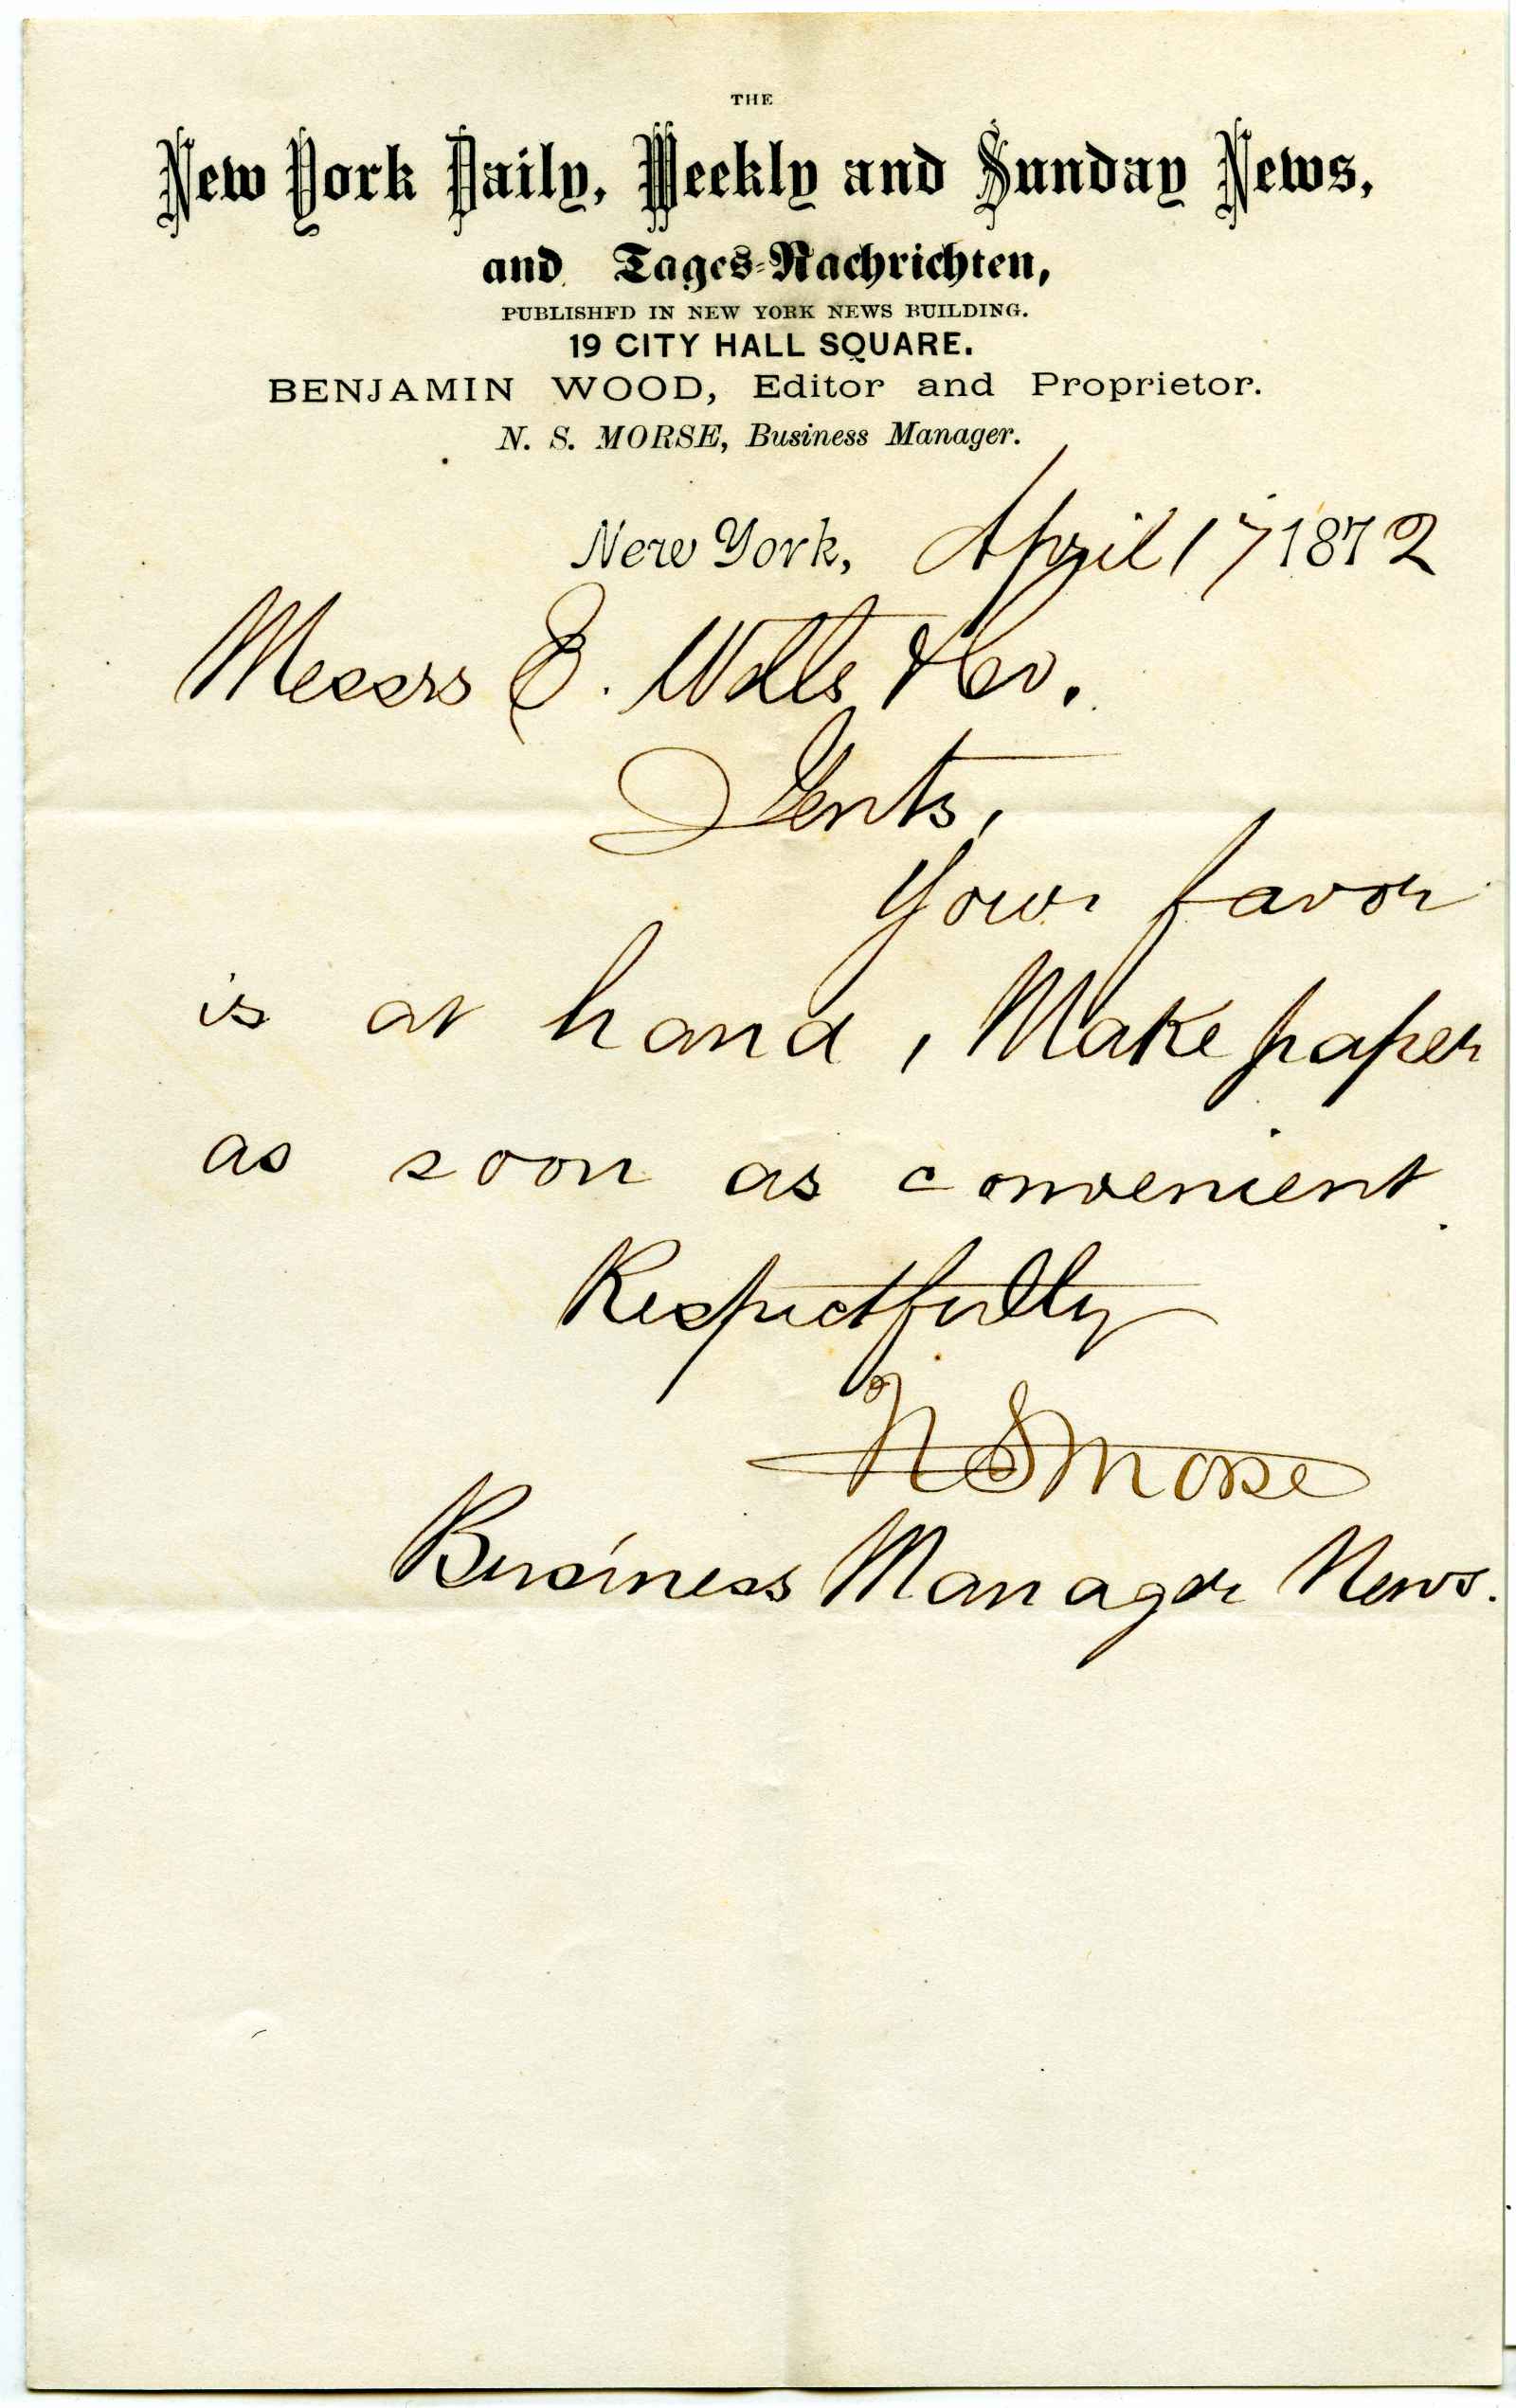 THE
New York Daily, Weekly and Sunday News,
and Tages-Nachrichten,
PUBLISHED IN NEW YORK NEWS BUILDING.
19 CITY HALL SQUARE.
BENJAMIN WOOD, Editor and Proprietor.
N. S. MORSE, Business Manager.
New York, April 17 1872
Messrs &Co.
Gents,
Your favor
is at hand, Make paper
as soon as convenient
Respectfully
N S Morse
Business Manager News.